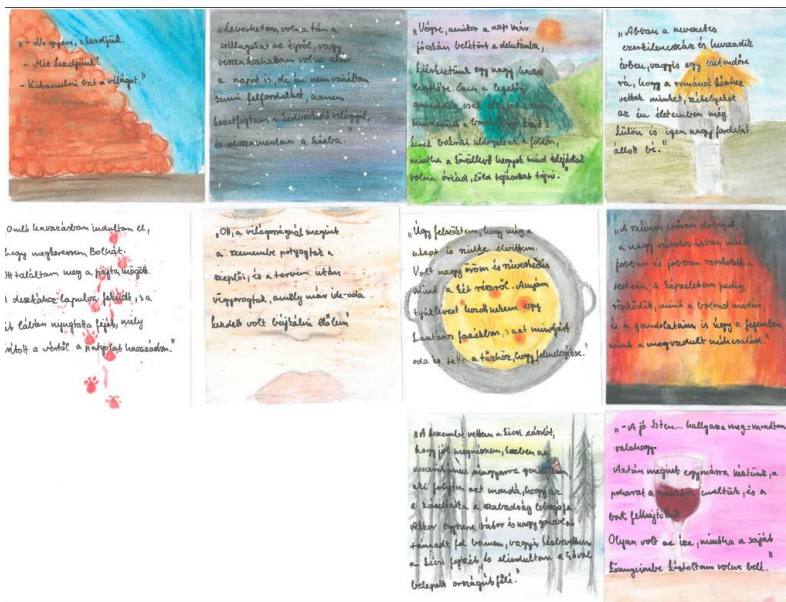 „- No gyere, s kezdjük.
- Mit kezdjünk?
- Kibámulni ezt a világot."
„Leverhettem volna tán a
csillagokat az égről, vagy
visszahozhattam volna akár
a napot is, de én nem csináltam
semmi felfordulást, hanem
kezet fogtam a
és visszamentem a házba."
„Végre, amikor a nap már
jócskán beletört a délutánba,
kiérkeztünk egy nagy, havasi
legelőre. Ezen a legelőn
ameddig csak
kicsi bokrai üldögéltek a földön,
mintha a körüllevő hegyek mind tolójákot
volna óriási, zöld tojásokat tojni."
„Abban a nevezetes
ezerkilencszáz és huszadik
évben, vagyis egy esztendőre
rá, hogy a románok kézhez
vettek minket, székelyeket
az én életemben még
külön is igen nagy fordulat
állott bé."
Omló havazásban indultam el,
hogy megkeressem Bolhát.
Ott találtam meg a pajta mögött.
A deszkához lapulva feküdt, s a
két lábán nyugtatta fejét, mely
a vértől a patyolat havazásban."
„Ott, a világosságnál megint
a szemembe potyogtak a
szeplői, és a tervem után
vigyorogtak, amely már ide-oda
kezdett volt bújkálni előlem"
„Úgy felnőttem, hogy még a
ükapt is szinte elvittem.
Volt nagy öröm és növelkedés
mind a két részről. Anyám
tyúklevest hordott nekem egy
kantáros fazékban, s azt mindjárt
oda is tette a tűzhöz, hogy felmelegítse."
„A szívem erősen dobogott,
a nagy várakozásban mind
jobban és jobban reszketett a
testem, a képzeletem pedig
röpködött, mint a bolond madár,
és a gondolataim is úgy a fejemben,
mint a megvadult méhcsalád."
„A kezembe vettem a kicsi zászlót,
hogy jól megnézzem, közben az
amerikános magyarra gondoltam
aki folyton azt mondá, hogy az
a zászlócska a szabadság lobogója.
Akkor egyszerre bátor és nagy gondolat
támadt fel bennem, vagyis
a kicsi fejszét és elindultam a fával
belepett országút félé."
„- A jó Isten... hallgassa meg - mondtam
valahogy.
Aztán megint egymásra néztünk, a
poharat a emeltük, és a
bort felhajtottuk.
Olyan volt az íze, mintha a saját
könnyeimbe kóstoltam volna belé."